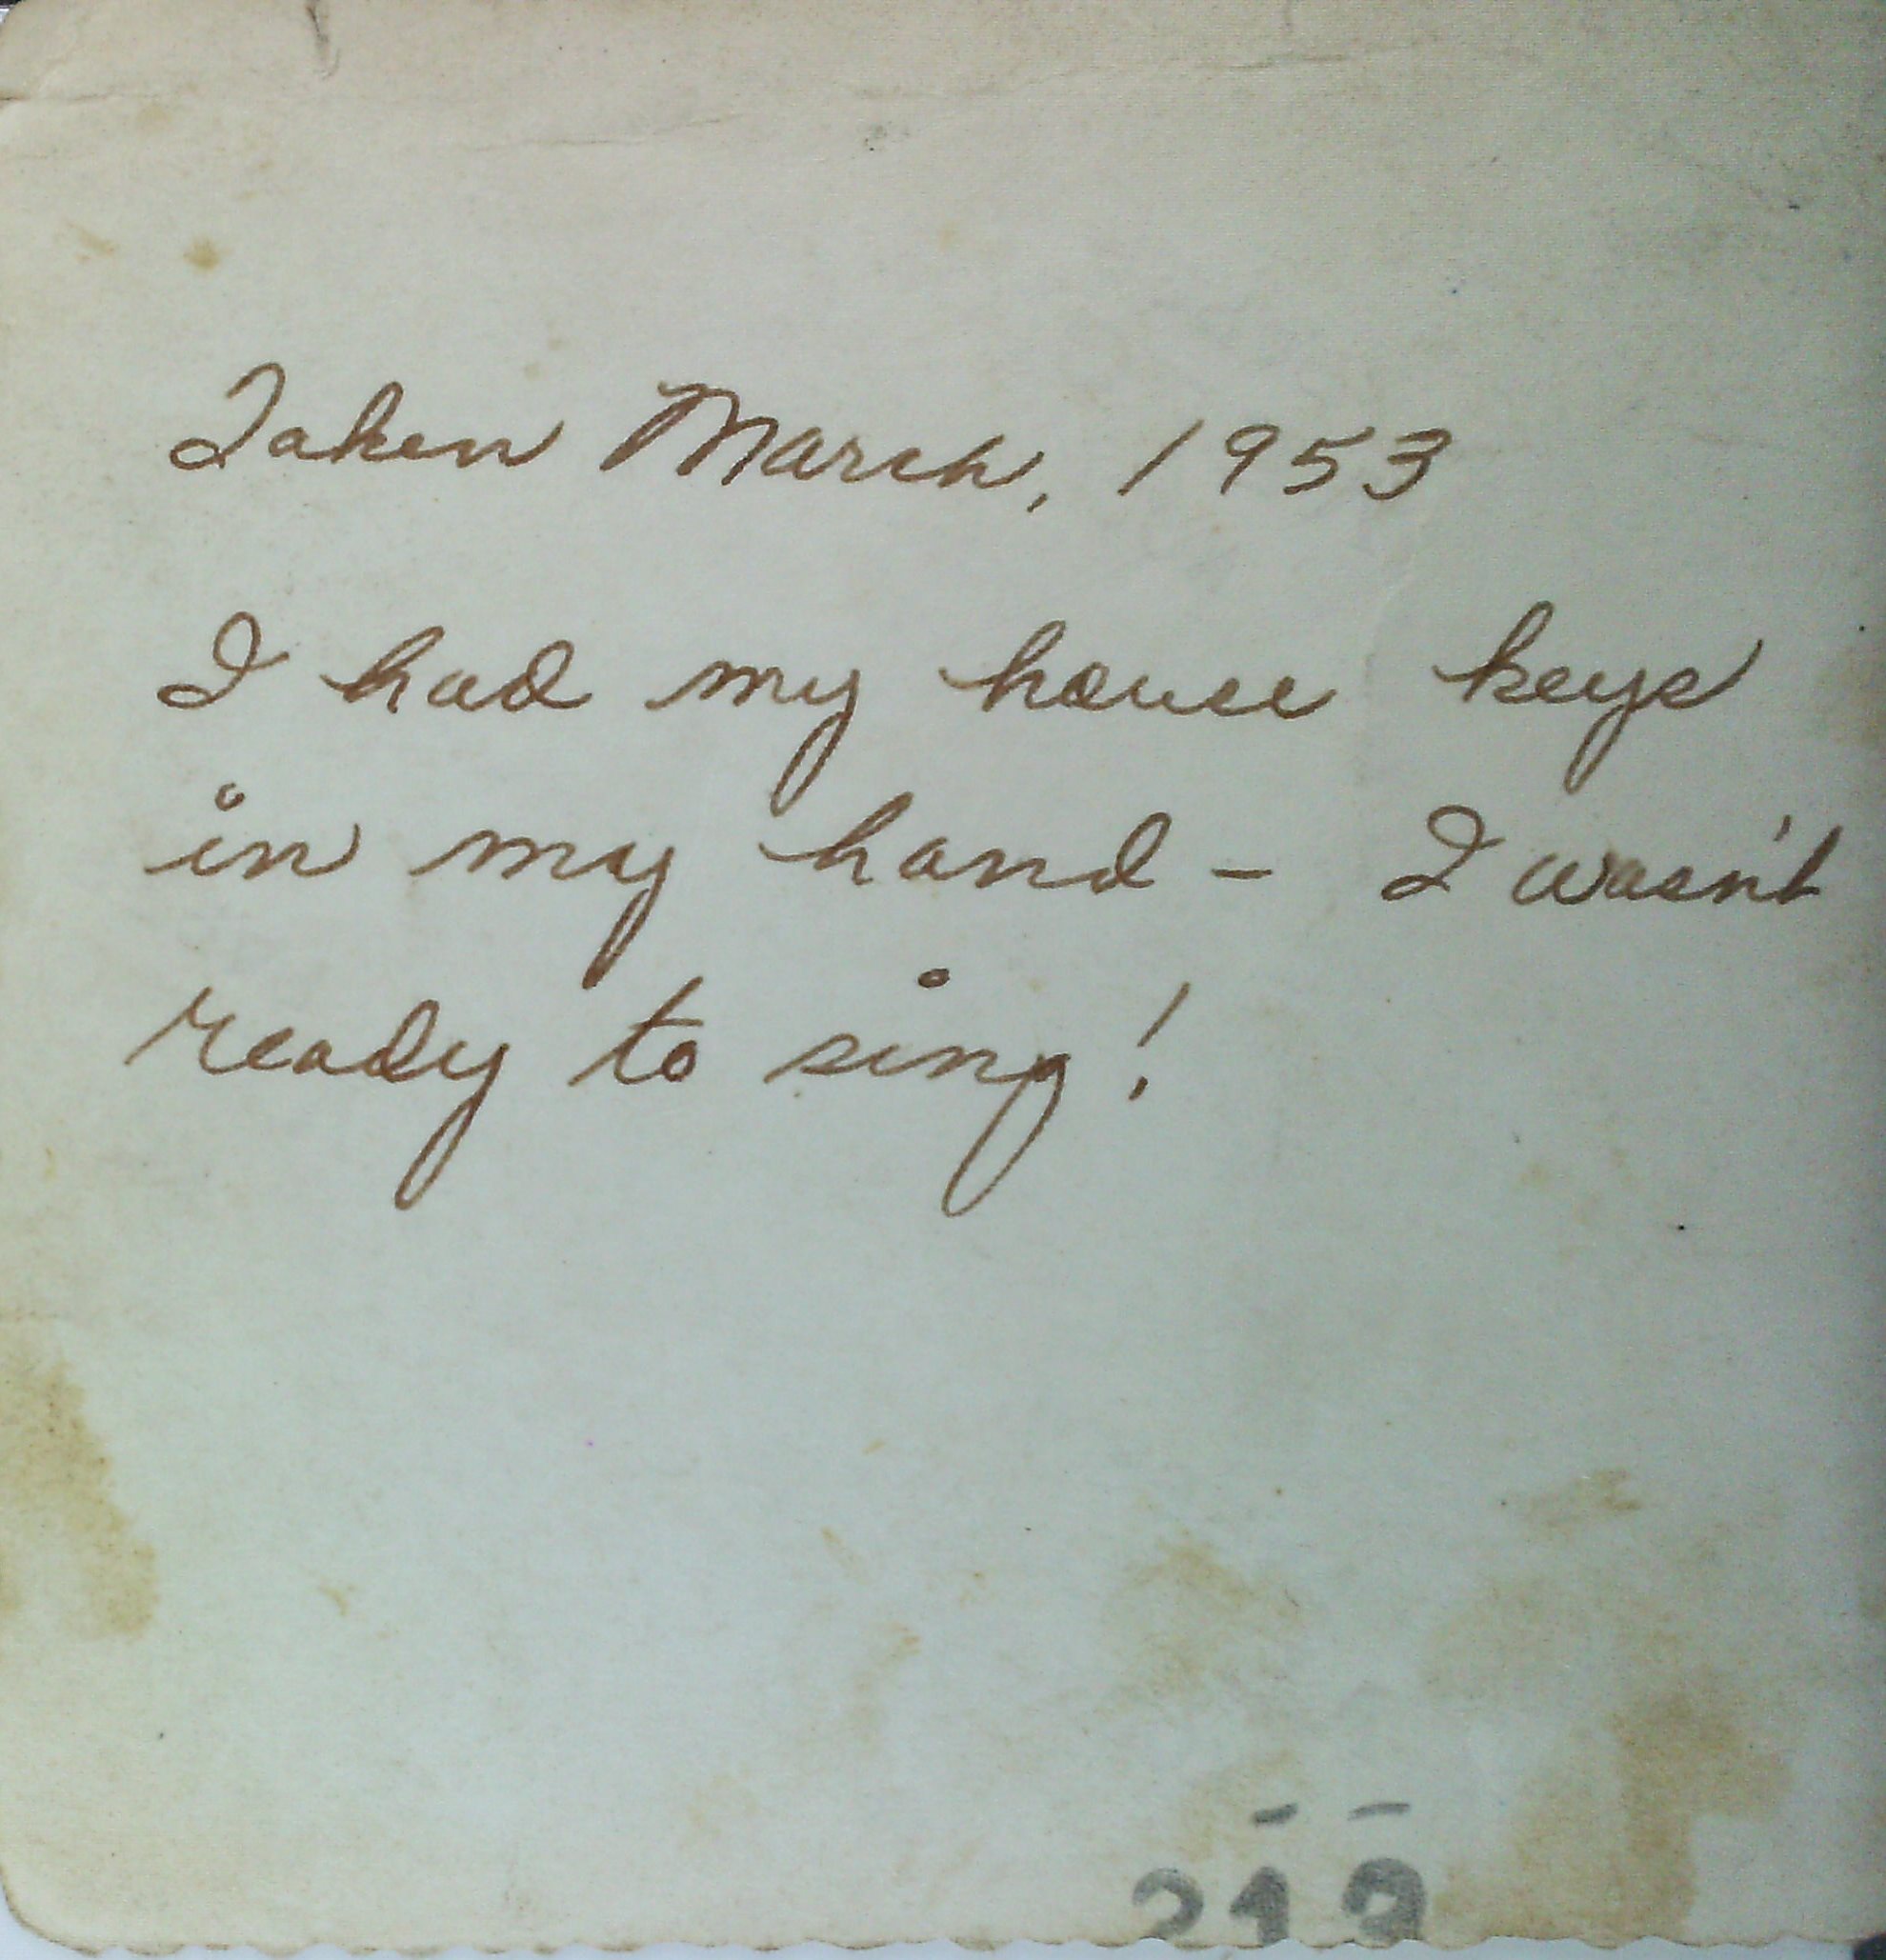 Taken March, 1953
I had my house keys
in my hand - I wasn't
ready to sing!